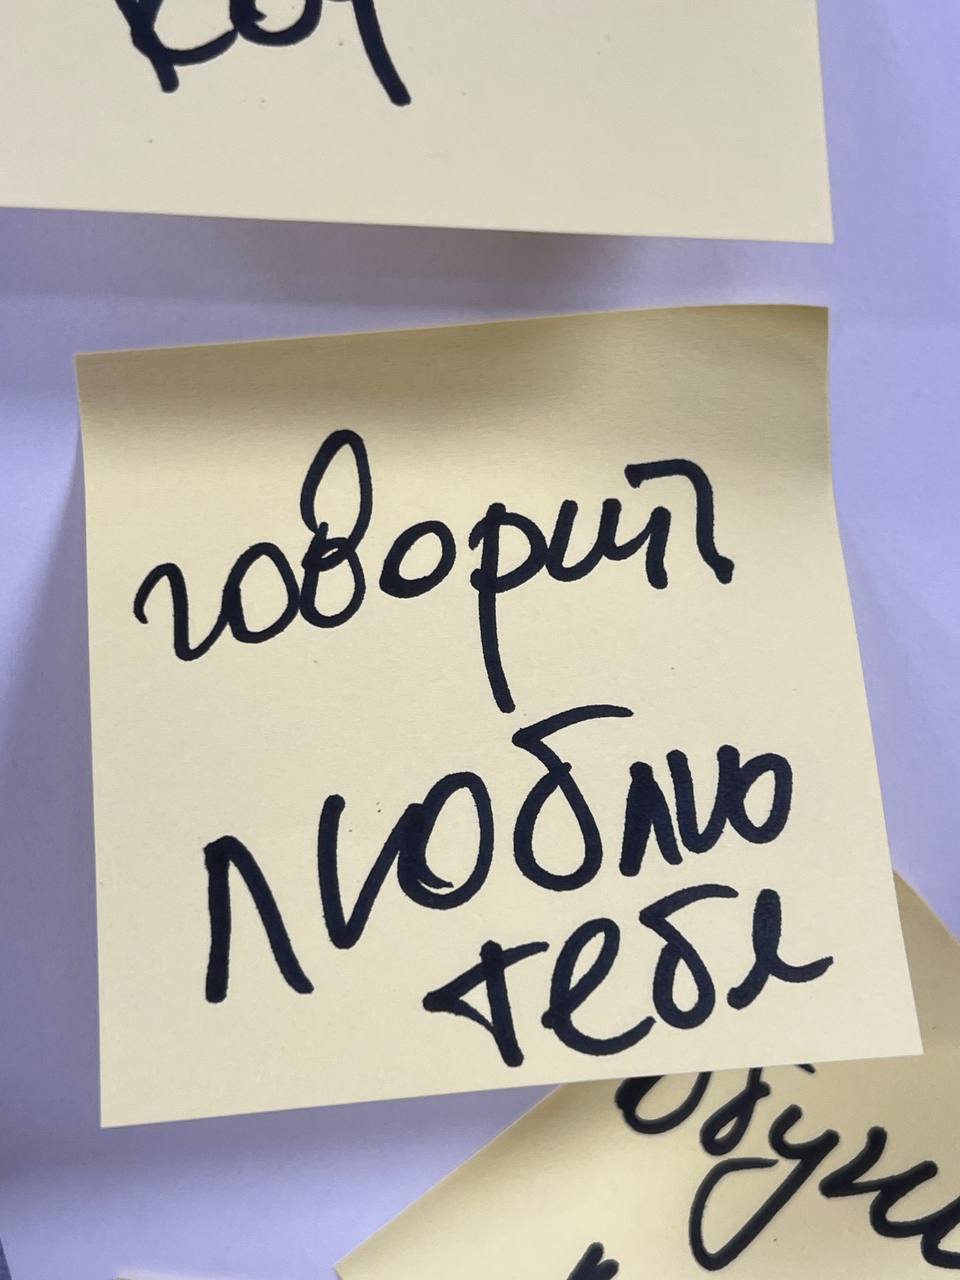 говорит
люблю
тебе